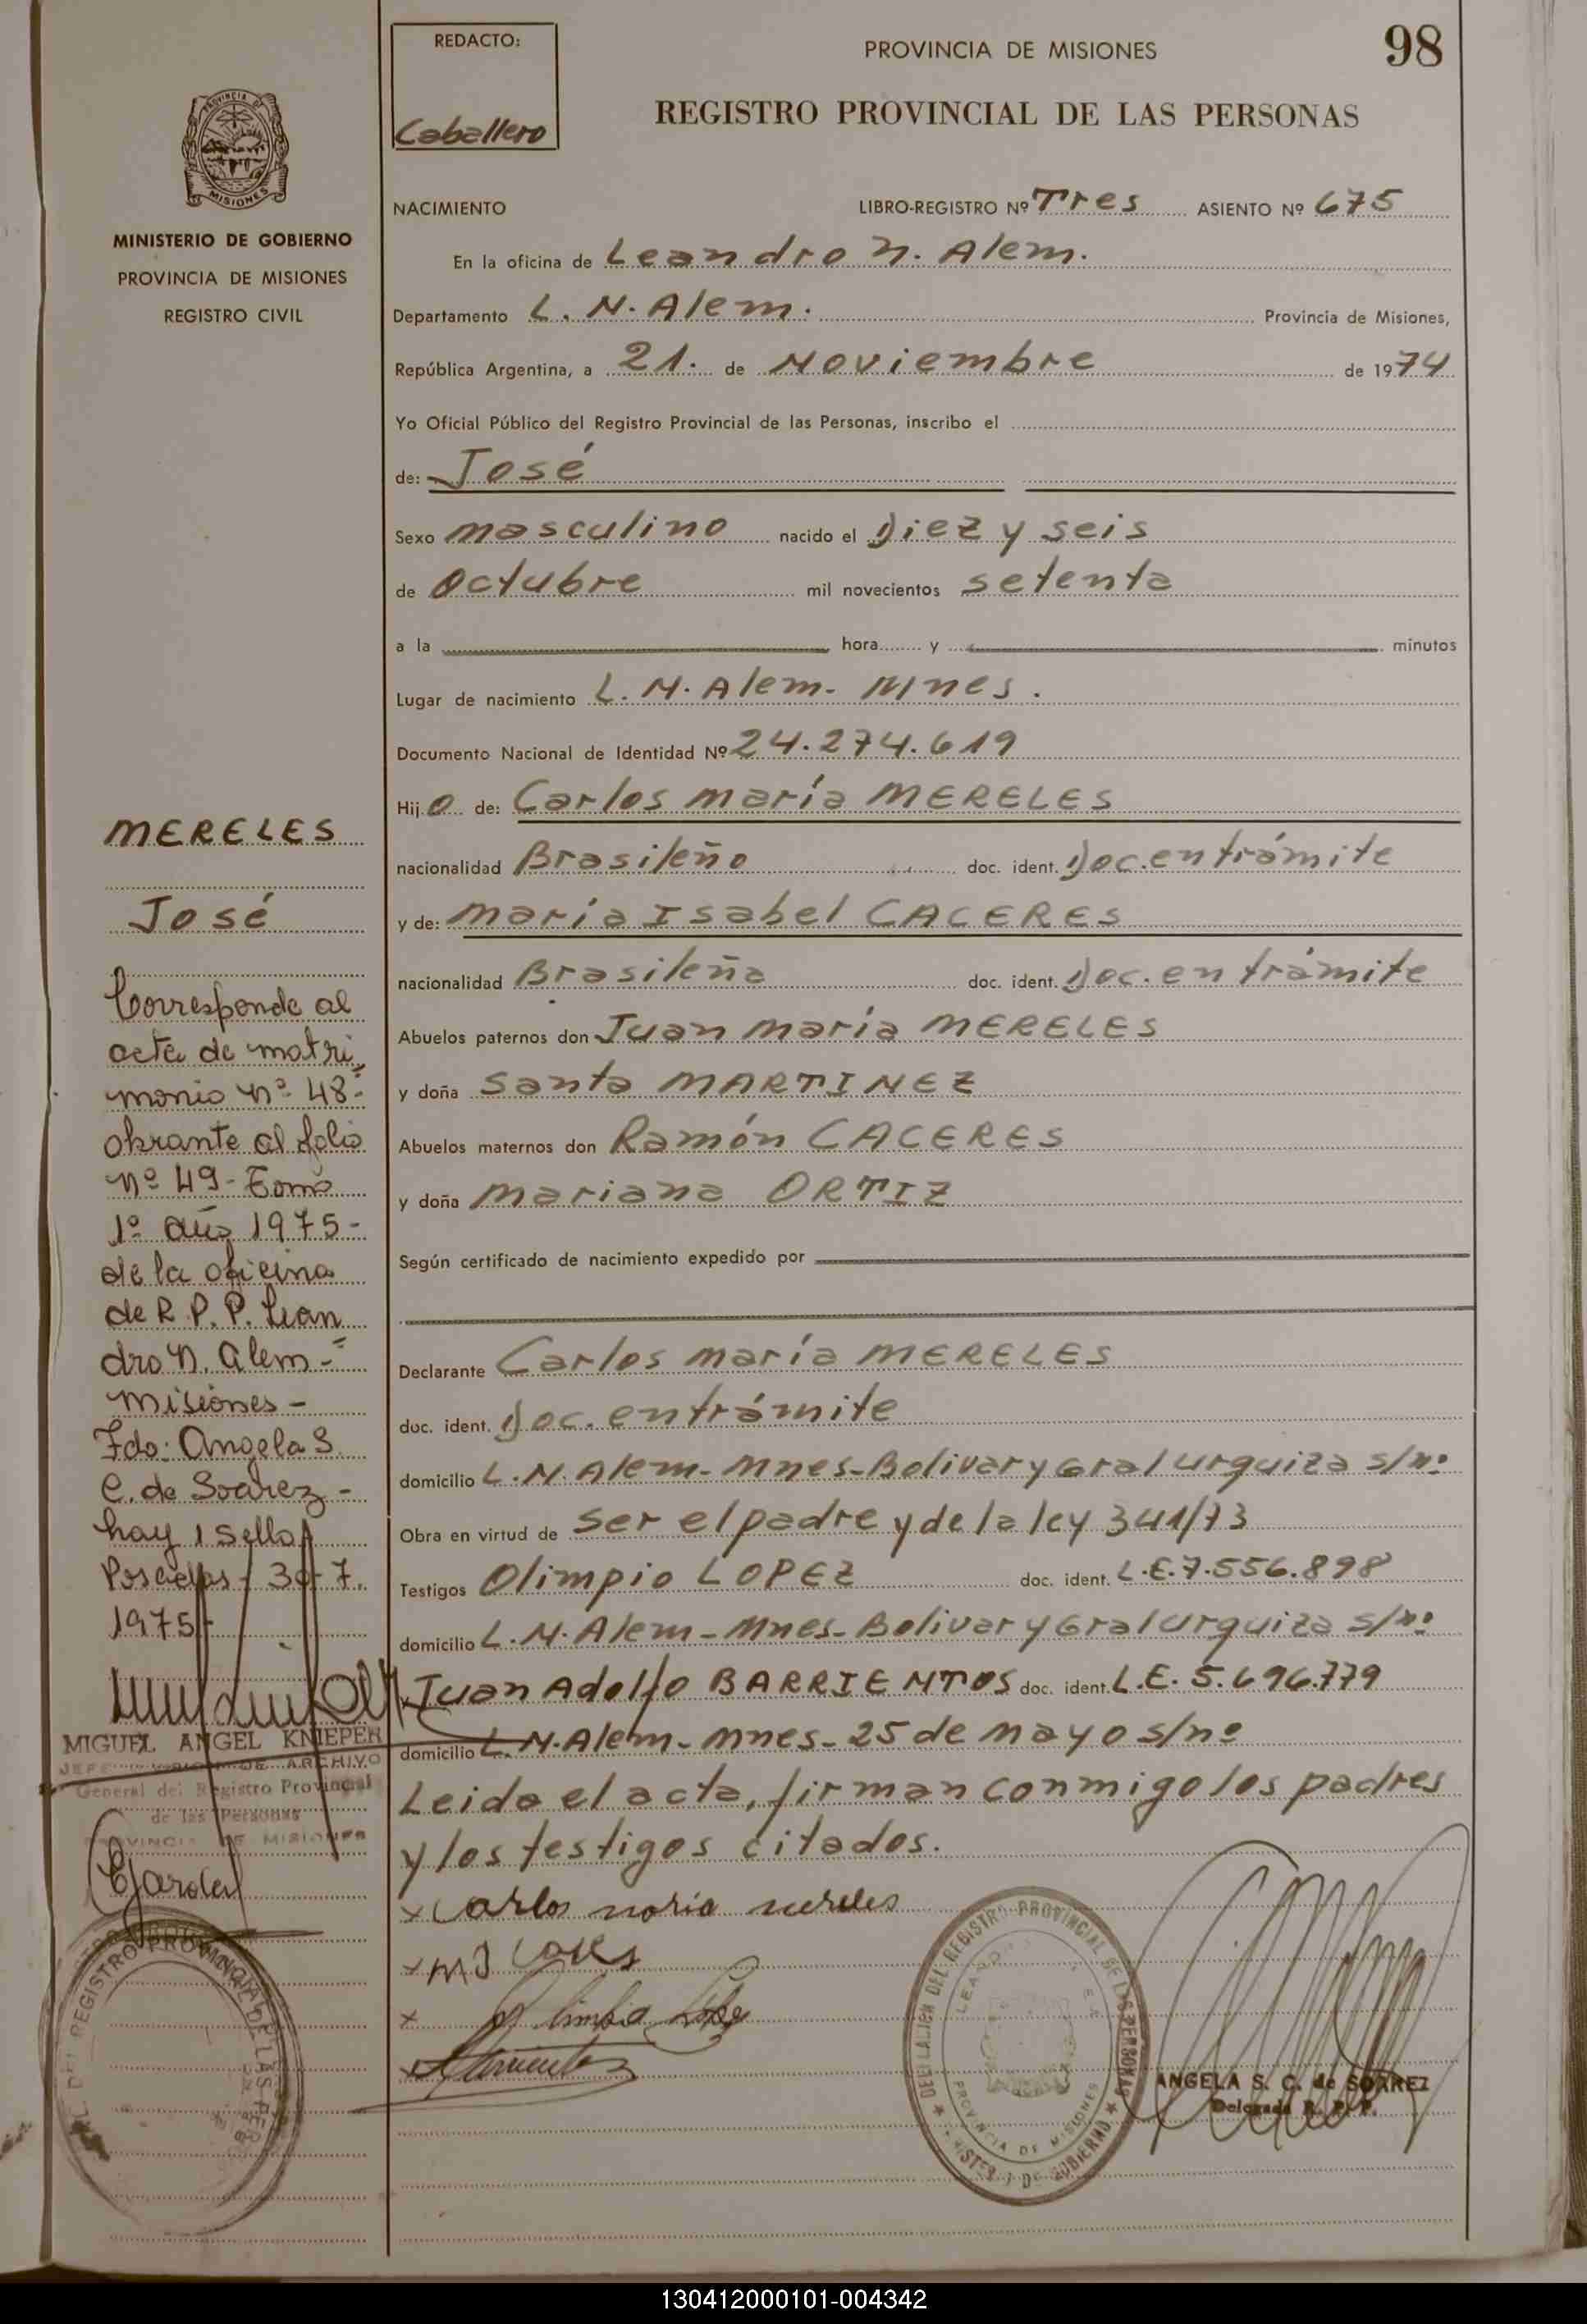 REDACTO:
Caballero
PROVINCIA DE MISIONES
98
REGISTRO PROVINCIAL DE LAS PERSONAS
PROVINCIA DE
MISIONES
MINISTERIO DE GOBIERNO
PROVINCIA DE MISIONES
REGISTRO CIVIL
NACIMIENTO LIBRO-REGISTRO Nº Tres ASIENTO Nº 675
En la oficina de Leandro N. Alem.
Departamento L. N. Alem. Provincia de Misiones,
República Argentina, a 21. de Noviembre de 1974
Yo Oficial Público del Registro Provincial de las Personas, inscribo el
de: José
Sexo masculino nacido el Diez y seis
de Octubre mil novecientos setenta
a la hora y minutos
Lugar de nacimiento L. N. Alem. Mnes.
Documento Nacional de Identidad Nº 24.274.619
Hijo de: Carlos maría MERELES
nacionalidad Brasileño doc. ident. Doc. en trámite
y de: maría Isabel CACERES
nacionalidad Brasileña doc. ident. Doc. en trámite
Abuelos paternos don Juan maría MERELES
y doña Santa MARTINEZ
Abuelos maternos don Ramón CACERES
y doña mariana ORTIZ
Según certificado de nacimiento expedido por
Declarante Carlos maría MERELES
doc. ident. Doc. en trámite
domicilio L. N. Alem - Mnes - Bolivar y Gral Urquiza s/nº
Obra en virtud de ser el padre y de la ley 341/73
Testigos Olimpio LOPEZ doc. ident. L.E. 7.556.898
domicilio L. N. Alem - Mnes - Bolivar y Gral Urquiza s/nº
Juan Adolfo BARRIENTOS doc. ident. L.E. 5.696.779
domicilio L. N. Alem - Mnes - 25 de mayo s/nº
Leida el acta, firman conmigo los padres
y los testigos citados.
x Carlos maria mereles
x
x Olimpio López
x Barrientos
MERELES
José
Corresponde al
acta de matri
monio nº 48-
obrante al folio
nº 49 - Tomo
1º año 1975-
de la oficina
de R. P. P. Lean
dro N. Alem -
misiones -
Fdo: Angela S.
C. de Soarez -
hay 1 sello
Posadas - 30 - 7.
1975 -
MIGUEL ANGEL KNIEPER
JEFE DE ARCHIVO
General del Registro Provincial
de las Personas
PROVINCIA DE MISIONES
DEL REGISTRO PROVINCIAL DE LAS PERSONAS
DELEGACION DEL REGISTRO PROVINCIAL DE LAS PERSONAS
MINISTERIO DE GOBIERNO
PROVINCIA DE MISIONES
ANGELA S. C. de SOAREZ
Delegada R. P. P.
130412000101-004342